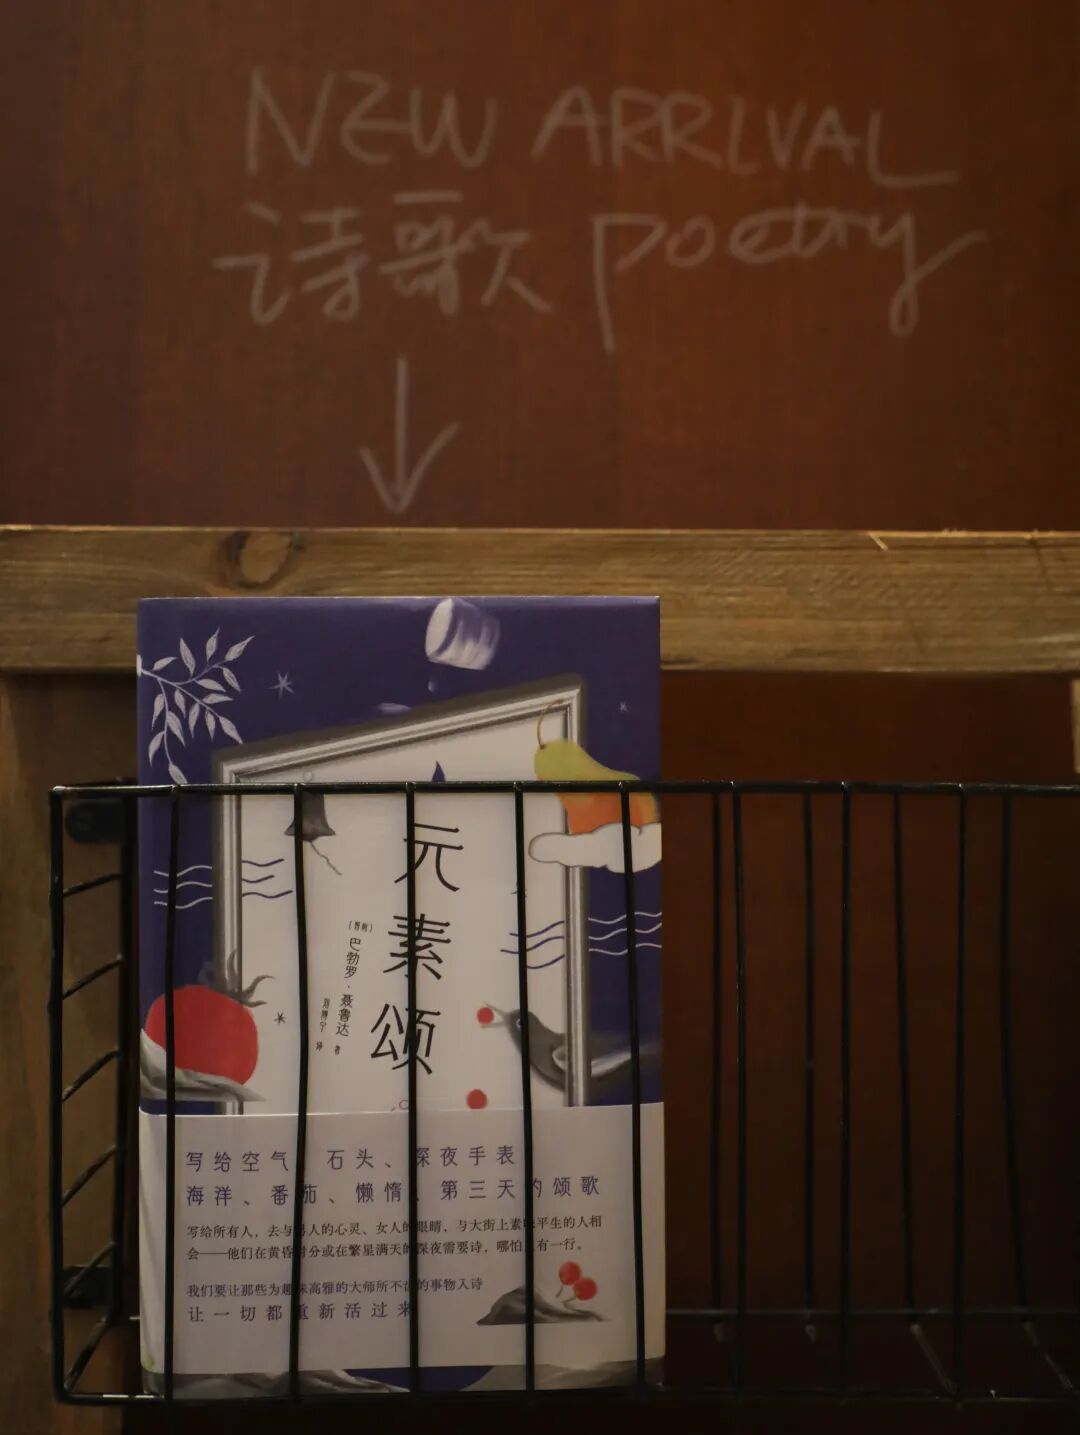 NEW ARRIVAL
诗歌 poetry
元素颂
〔智利〕巴勃罗·聂鲁达 著
刘博宁 译
写给空气、石头、深夜手表
海洋、番茄、懒惰、第三天的颂歌
写给所有人，去与男人的心灵、女人的眼睛、与大街上素昧平生的人相
会——他们在黄昏时分或在繁星满天的深夜需要诗，哪怕只有一行。
我们要让那些为趣味高雅的大师所不齿的事物入诗
让一切都重新活过来